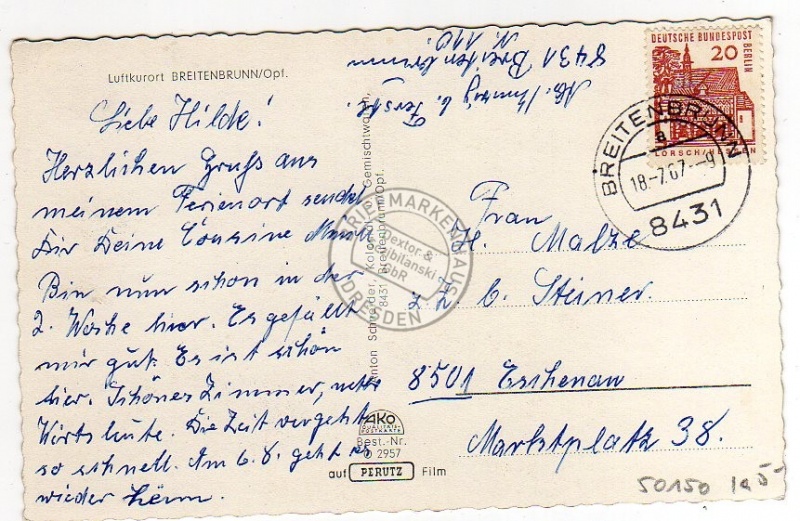 Luftkurort BREITENBRUNN/Opf.
Liebe Hilde!
Herzlichen Gruss aus
meinem Ferienort sendet
Dir Deine Cousine
Bin nun schon in der
2. Woche hier. Es gefällt
mir gut. Es ist schön
hier. Schönes Zimmer, nette
Wirtsleute. Die Zeit vergeht
so schnell. Am 6.8. geht es
wieder heim.
b. Forstb.
8431 Breitenbrunn
N. 110
Anton Schrader, Kolonial Gemischtwaren,
8431 Breitenbrunn/Opf.
AKO
QUALITÄTS-
POSTKARTE
Best.-Nr.
O 2957
auf PERUTZ Film
DEUTSCHE BUNDESPOST
BERLIN
20
LORSCH/HESSEN
BREITENBRUNN
a
18.-7.67.--9
8431
Frau
H. Malze
z.Z. b. Steiner
8501 Eschenau
Marktplatz 38.
BRIEFMARKENHAUS
Dextor &
Wibilanski
GbR
DRESDEN
50150